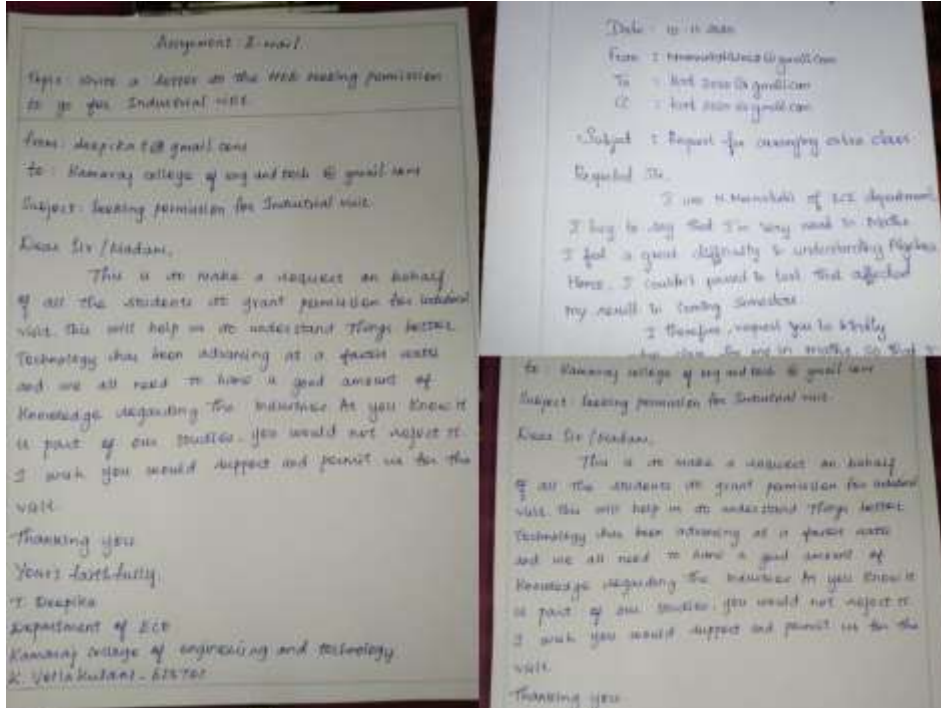 Assignment: E-mail
Topic: Write a letter to the HOD seeking permission
to go for Industrial visit.
from: deepika t@gmail.com
to: Kamaraj college of eng and tech @ gmail.com
Subject: Seeking permission for Industrial visit.
Dear Sir / Madam,
This is to make a request on behalf
of all the students to grant permission for industrial
visit. this will help us to understand things better
Technology has been advancing at a faster rate
and we all need to have a good amount of
Knowledge regarding the industries As you know it
is part of our studies. you would not reject it.
I wish you would support and permit us for the
visit.
Thanking you
Yours faithfully
T. Deepika
Department of ECE
Kamaraj college of engineering and technology
K. Vellakulam -
Date :
From :
To :
CC :
Subject : Request for arranging extra class
Respected Sir,
I am of ECE department.
I beg to say that I'm very weak in Maths
I feel a great difficulty in understanding Algebra
Hence, I couldn't test that affected
my result in coming semester
I therefore, request you to kindly
class for me in maths, so that
to: Kamaraj college of eng and tech @ gmail.com
Subject: Seeking permission for Industrial visit.
Dear Sir / Madam,
This is to make a request on behalf
of all the students to grant permission for industrial
visit. this will help us to understand things better
Technology has been advancing at a faster rate
and we all need to have a good amount of
Knowledge regarding the industries As you know it
is part of our studies. you would not reject it.
I wish you would support and permit us for the
visit.
Thanking you